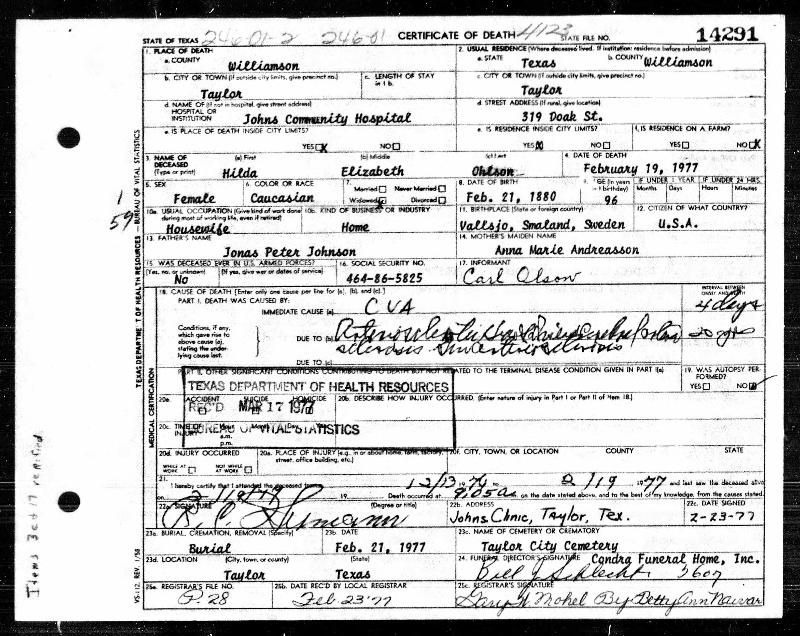 246-01-2 246-01 CERTIFICATE OF DEATH 4123 14291
STATE OF TEXAS STATE FILE NO.
1. PLACE OF DEATH 2. USUAL RESIDENCE (Where deceased lived. If institution: residence before admission)
a. COUNTY Williamson a. STATE Texas b. COUNTY Williamson
b. CITY OR TOWN (If outside city limits, give precinct no.) c. LENGTH OF STAY in 1 b. c. CITY OR TOWN (If outside city limits, give precinct no.)
Taylor Taylor
d. NAME OF (If not in hospital, give street address) HOSPITAL OR INSTITUTION d. STREET ADDRESS (If rural, give location)
Johns Community Hospital 319 Doak St.
e. IS PLACE OF DEATH INSIDE CITY LIMITS? e. IS RESIDENCE INSIDE CITY LIMITS? f. IS RESIDENCE ON A FARM?
YES X NO YES X NO YES NO X
3. NAME OF DECEASED (Type or print) (a) First (b) Middle (c) Last 4. DATE OF DEATH
Hilda Elizabeth Ohlson February 19, 1977
5. SEX 6. COLOR OR RACE 7. Married Never Married 8. DATE OF BIRTH 9. AGE (In years last birthday) IF UNDER 1 YEAR IF UNDER 24 HRS.
Months Days Hours Minutes
Female Caucasian Widowed X Divorced Feb. 21, 1880 96
10a. USUAL OCCUPATION (Give kind of work done during most of working life, even if retired) 10b. KIND OF BUSINESS OR INDUSTRY 11. BIRTHPLACE (State or foreign country) 12. CITIZEN OF WHAT COUNTRY?
Housewife Home Vallsjo, Smaland, Sweden U.S.A.
13. FATHER'S NAME 14. MOTHER'S MAIDEN NAME
Jonas Peter Johnson Anna Marie Andreasson
15. WAS DECEASED EVER IN U.S. ARMED FORCES? 16. SOCIAL SECURITY NO. 17. INFORMANT
(Yes, no, or unknown) (If yes, give war or dates of service)
No 464-86-5825 Carl Olson
18. CAUSE OF DEATH [Enter only one cause per line for (a), (b), and (c).] INTERVAL BETWEEN ONSET AND DEATH
PART I. DEATH WAS CAUSED BY:
IMMEDIATE CAUSE (a) CVA 4 days
Conditions, if any, which gave rise to above cause (a), stating the under-lying cause last.
DUE TO (b) 20 yrs
DUE TO (c)
PART II. OTHER SIGNIFICANT CONDITIONS CONTRIBUTING TO DEATH BUT NOT RELATED TO THE TERMINAL DISEASE CONDITION GIVEN IN PART I(a) 19. WAS AUTOPSY PERFORMED?
YES NO
TEXAS DEPARTMENT OF HEALTH RESOURCES
REC'D MAR 17 1977
BUREAU OF VITAL STATISTICS
20a. ACCIDENT SUICIDE HOMICIDE 20b. DESCRIBE HOW INJURY OCCURRED. (Enter nature of injury in Part I or Part II of Item 18.)
20c. TIME OF INJURY Hour Month Day Year
a.m.
p.m.
20d. INJURY OCCURRED 20e. PLACE OF INJURY (e.g., in or about home, farm, factory, street, office building, etc.) 20f. CITY, TOWN, OR LOCATION COUNTY STATE
WHILE AT WORK NOT WHILE AT WORK
21. I hereby certify that I attended the deceased from 12/13 1976 to 2/19 1977 and last saw the deceased alive
on 2/19/77 19 Death occurred at 9:05a m. on the date stated above, and to the best of my knowledge, from the causes stated.
22a. SIGNATURE (Degree or title) 22b. ADDRESS 22c. DATE SIGNED
Johns Clinic, Taylor, Tex. 2-23-77
23a. BURIAL, CREMATION, REMOVAL (Specify) 23b. DATE 23c. NAME OF CEMETERY OR CREMATORY
Burial Feb. 21, 1977 Taylor City Cemetery
23d. LOCATION (City, town, or county) (State) 24. FUNERAL DIRECTOR'S SIGNATURE Condra Funeral Home, Inc.
Taylor Texas Bill J Schlecht 3607
25a. REGISTRAR'S FILE NO. 25b. DATE REC'D BY LOCAL REGISTRAR 25c. REGISTRAR'S SIGNATURE
P. 28 Feb 23 '77 Gary W. Mohel By Betty Ann Naivar
TEXAS DEPARTMENT OF HEALTH RESOURCES — BUREAU OF VITAL STATISTICS
MEDICAL CERTIFICATION
VS-112 REV. 1/58
1
59